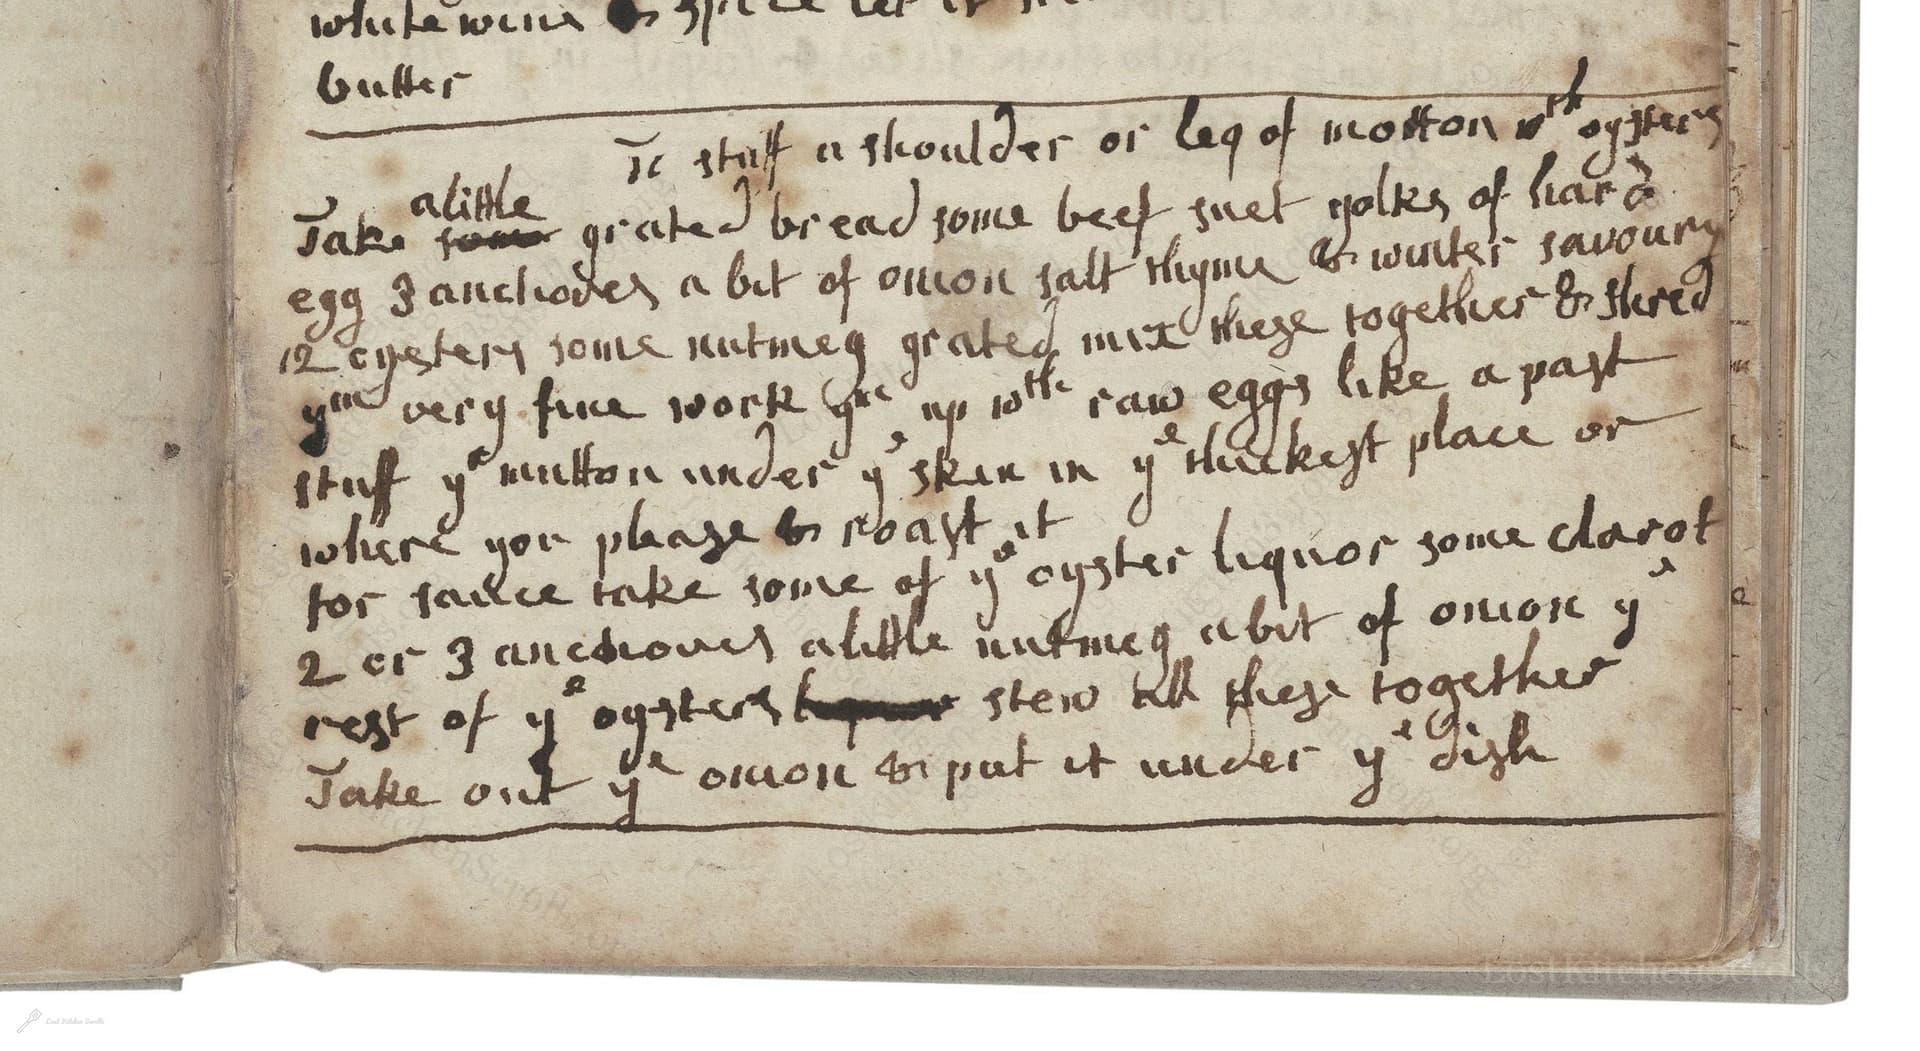 white wine & spice let it
butter
To stuff a shoulder or leg of motton wth oysters
a little
Take some grated bread some beef suet yolks of hard
egg 3 anchoves a bit of onion salt thyme & winter savoury
12 oysters some nutmeg grated mix these together & shred
ym very fine work ym up wth raw eggs like a past
stuff ye mutton under ye skin in ye thickest place or
where you please & roast it
for sauce take some of ye oyster liquor some clarot
2 or 3 anchoves a little nutmeg a bit of onion ye
rest of ye oysters stew all these together
Take out ye onion & put it under ye dish
LostKitchenScrolls
Lost Kitchen Scrolls